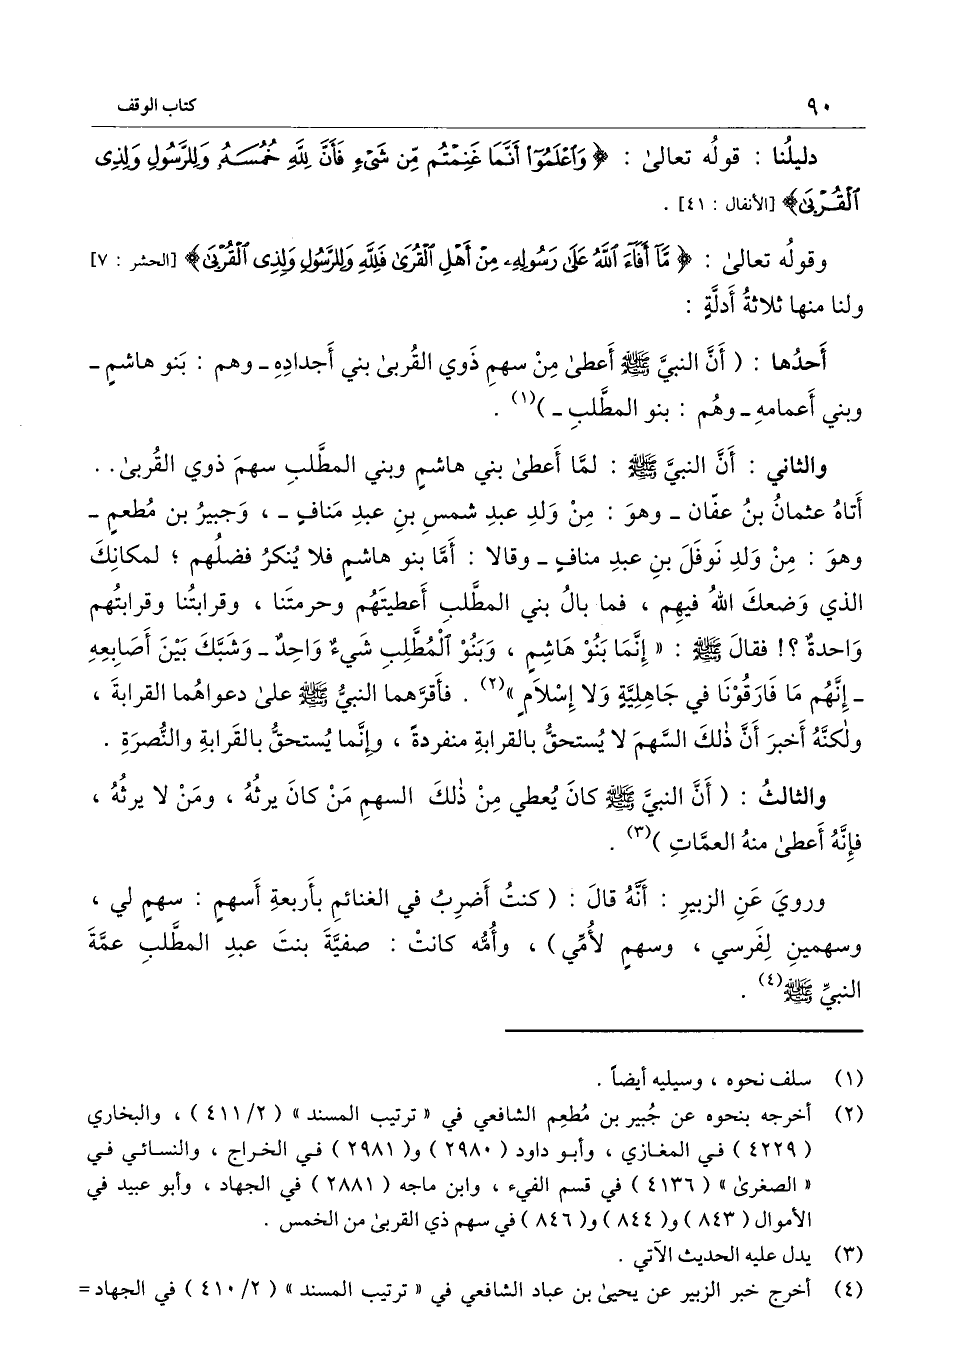 ٩٠ كتاب الوقف
دليلُنا : قولُه تعالىٰ : ﴿ وَٱعْلَمُوٓا۟ أَنَّمَا غَنِمْتُم مِّن شَىْءٍ فَأَنَّ لِلَّهِ خُمُسَهُۥ وَلِلرَّسُولِ وَلِذِى
ٱلْقُرْبَىٰ﴾ [الأنفال : ٤١] .
وقولُه تعالىٰ : ﴿ مَّآ أَفَآءَ ٱللَّهُ عَلَىٰ رَسُولِهِۦ مِنْ أَهْلِ ٱلْقُرَىٰ فَلِلَّهِ وَلِلرَّسُولِ وَلِذِى ٱلْقُرْبَىٰ﴾ [الحشر : ٧]
ولنا منها ثلاثةُ أَدلَّةٍ :
أَحدُها : ( أَنَّ النبيَّ ﷺ أَعطىٰ مِنْ سهمِ ذَوي القُربىٰ بني أَجدادِهِ ـ وهم : بَنو هاشمٍ ـ
وبني أَعمامهِ ـ وهُم : بنو المطَّلبِ ـ )(١) .
والثاني : أَنَّ النبيَّ ﷺ : لمَّا أَعطىٰ بني هاشمٍ وبني المطَّلبِ سهمَ ذوي القُربىٰ. .
أَتاهُ عثمانُ بنُ عفّان ـ وهوَ : مِنْ وَلدِ عبدِ شمسِ بنِ عبدِ مَنافٍ ـ ، وَجبيرُ بن مُطعمٍ ـ
وهوَ : مِنْ وَلدِ نَوفَلَ بنِ عبدِ منافٍ ـ وقالا : أَمَّا بنو هاشمٍ فلا يُنكرُ فضلُهم ؛ لمكانِكَ
الذي وَضعكَ اللهُ فيهِم ، فما بالُ بني المطلَّبِ أَعطيتَهُم وحرمتَنا ، وقرابتُنا وقرابتُهم
وَاحدةٌ ؟! فقالَ ﷺ : « إِنَّمَا بَنُوْ هَاشِمٍ ، وَبَنُوْ ٱلْمُطَّلِبِ شَيءٌ وَاحِدٌ ـ وَشَبَّكَ بَيْنَ أَصَابِعِهِ
ـ إِنَّهُم مَا فَارَقُوْنَا في جَاهِلِيَّةٍ وَلا إِسْلَامٍ »(٢) . فأَقرَّهما النبيُّ ﷺ علىٰ دعواهُما القرابةَ ،
ولٰكنَّهُ أَخبرَ أَنَّ ذٰلكَ السَّهمَ لا يُستحقُّ بالقرابةِ منفردةً ، وإِنَّما يُستحقُّ بالقرابةِ والنُّصرَةِ .
والثالثُ : ( أَنَّ النبيَّ ﷺ كانَ يُعطي مِنْ ذٰلكَ السهمِ مَنْ كانَ يرثُهُ ، ومَنْ لا يرثُهُ ،
فإِنَّهُ أَعطىٰ منهُ العمَّاتِ )(٣) .
ورويَ عَنِ الزبيرِ : أَنَّهُ قالَ : ( كنتُ أَضرِبُ في الغنائمِ بأَربعةِ أَسهمٍ : سهمٍ لي ،
وسهمينِ لِفَرسي ، وسهمٍ لأُمِّي ) ، وأُمُّه كانتْ : صفيَّةَ بنتَ عبدِ المطَّلبِ عمَّةَ
النبيِّ ﷺ(٤) .
(١) سلف نحوه ، وسيليه أيضاً .
(٢) أخرجه بنحوه عن جُبير بن مُطعِم الشافعي في « ترتيب المسند » ( ٢/ ٤١١ ) ، والبخاري
( ٤٢٢٩ ) في المغازي ، وأبو داود ( ٢٩٨٠ ) و( ٢٩٨١ ) في الخراج ، والنسائي في
« الصغرىٰ » ( ٤١٣٦ ) في قسم الفيء ، وابن ماجه ( ٢٨٨١ ) في الجهاد ، وأبو عبيد في
الأموال ( ٨٤٣ ) و( ٨٤٤ ) و( ٨٤٦ ) في سهم ذي القربىٰ من الخمس .
(٣) يدل عليه الحديث الآتي .
(٤) أخرج خبر الزبير عن يحيىٰ بن عباد الشافعي في « ترتيب المسند » ( ٢/ ٤١٠ ) في الجهاد =